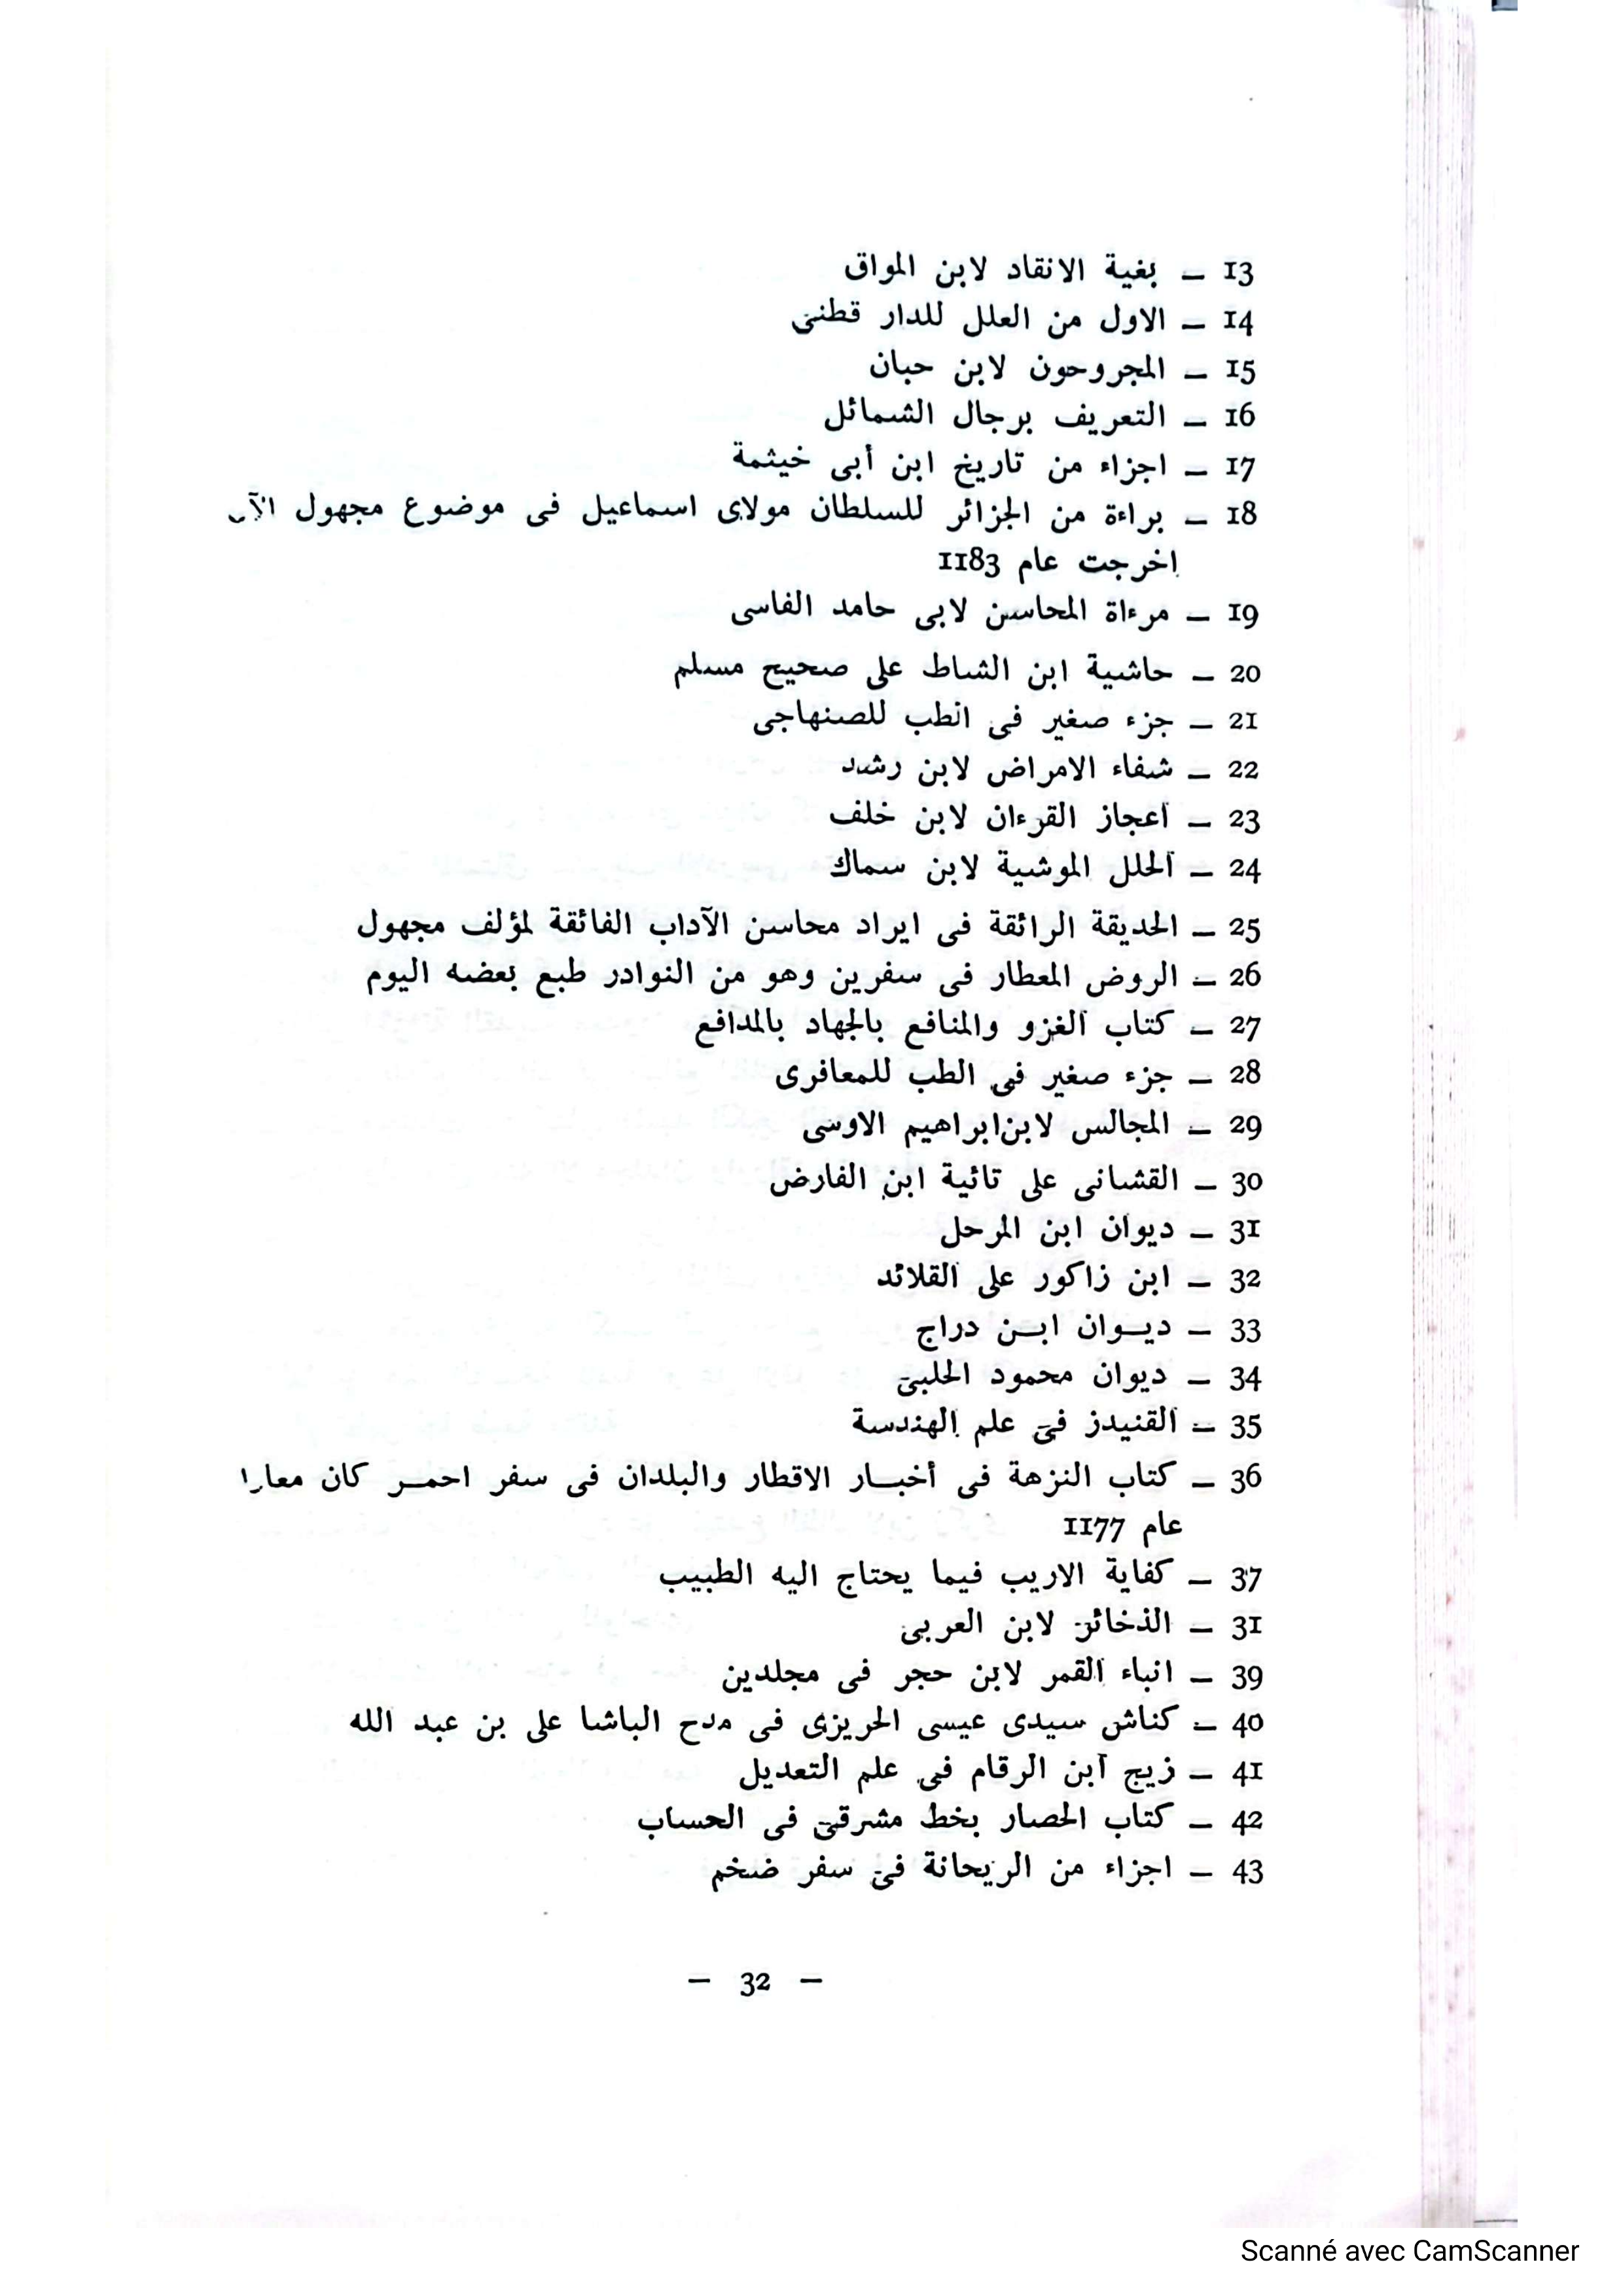 13 — بغية الانقاد لابن المواق
14 — الاول من العلل للدار قطنى
15 — المجروحون لابن حبان
16 — التعريف برجال الشمائل
17 — اجزاء من تاريخ ابن أبى خيثمة
18 — براءة من الجزائر للسلطان مولاى اسماعيل فى موضوع مجهول
اخرجت عام 1183
19 — مرءاة المحاسن لابى حامد الفاسى
20 — حاشية ابن الشاط على صحيح مسلم
21 — جزء صغير فى الطب للصنهاجى
22 — شفاء الامراض لابن رشد
23 — اعجاز القرءان لابن خلف
24 — الحلل الموشية لابن سماك
25 — الحديقة الرائقة فى ايراد محاسن الآداب الفائقة لمؤلف مجهول
26 — الروض المعطار فى سفرين وهو من النوادر طبع بعضه اليوم
27 — كتاب الغزو والمنافع بالجهاد بالمدافع
28 — جزء صغير فى الطب للمعافرى
29 — المجالس لابن ابراهيم الاوسى
30 — القشانى على تائية ابن الفارض
31 — ديوان ابن المرحل
32 — ابن زاكور على القلائد
33 — ديوان ابن دراج
34 — ديوان محمود الحلبى
35 — القنيدز فى علم الهندسة
36 — كتاب النزهة فى أخبار الاقطار والبلدان فى سفر احمر كان معارا
عام 1177
37 — كفاية الاريب فيما يحتاج اليه الطبيب
31 — الذخائر لابن العربى
39 — انباء القمر لابن حجر فى مجلدين
40 — كناش سيدى عيسى الحريزى فى مدح الباشا على بن عبد الله
41 — زيج ابن الرقام فى علم التعديل
42 — كتاب الحصار بخط مشرقى فى الحساب
43 — اجزاء من الريحانة فى سفر ضخم
— 32 —
Scanné avec CamScanner